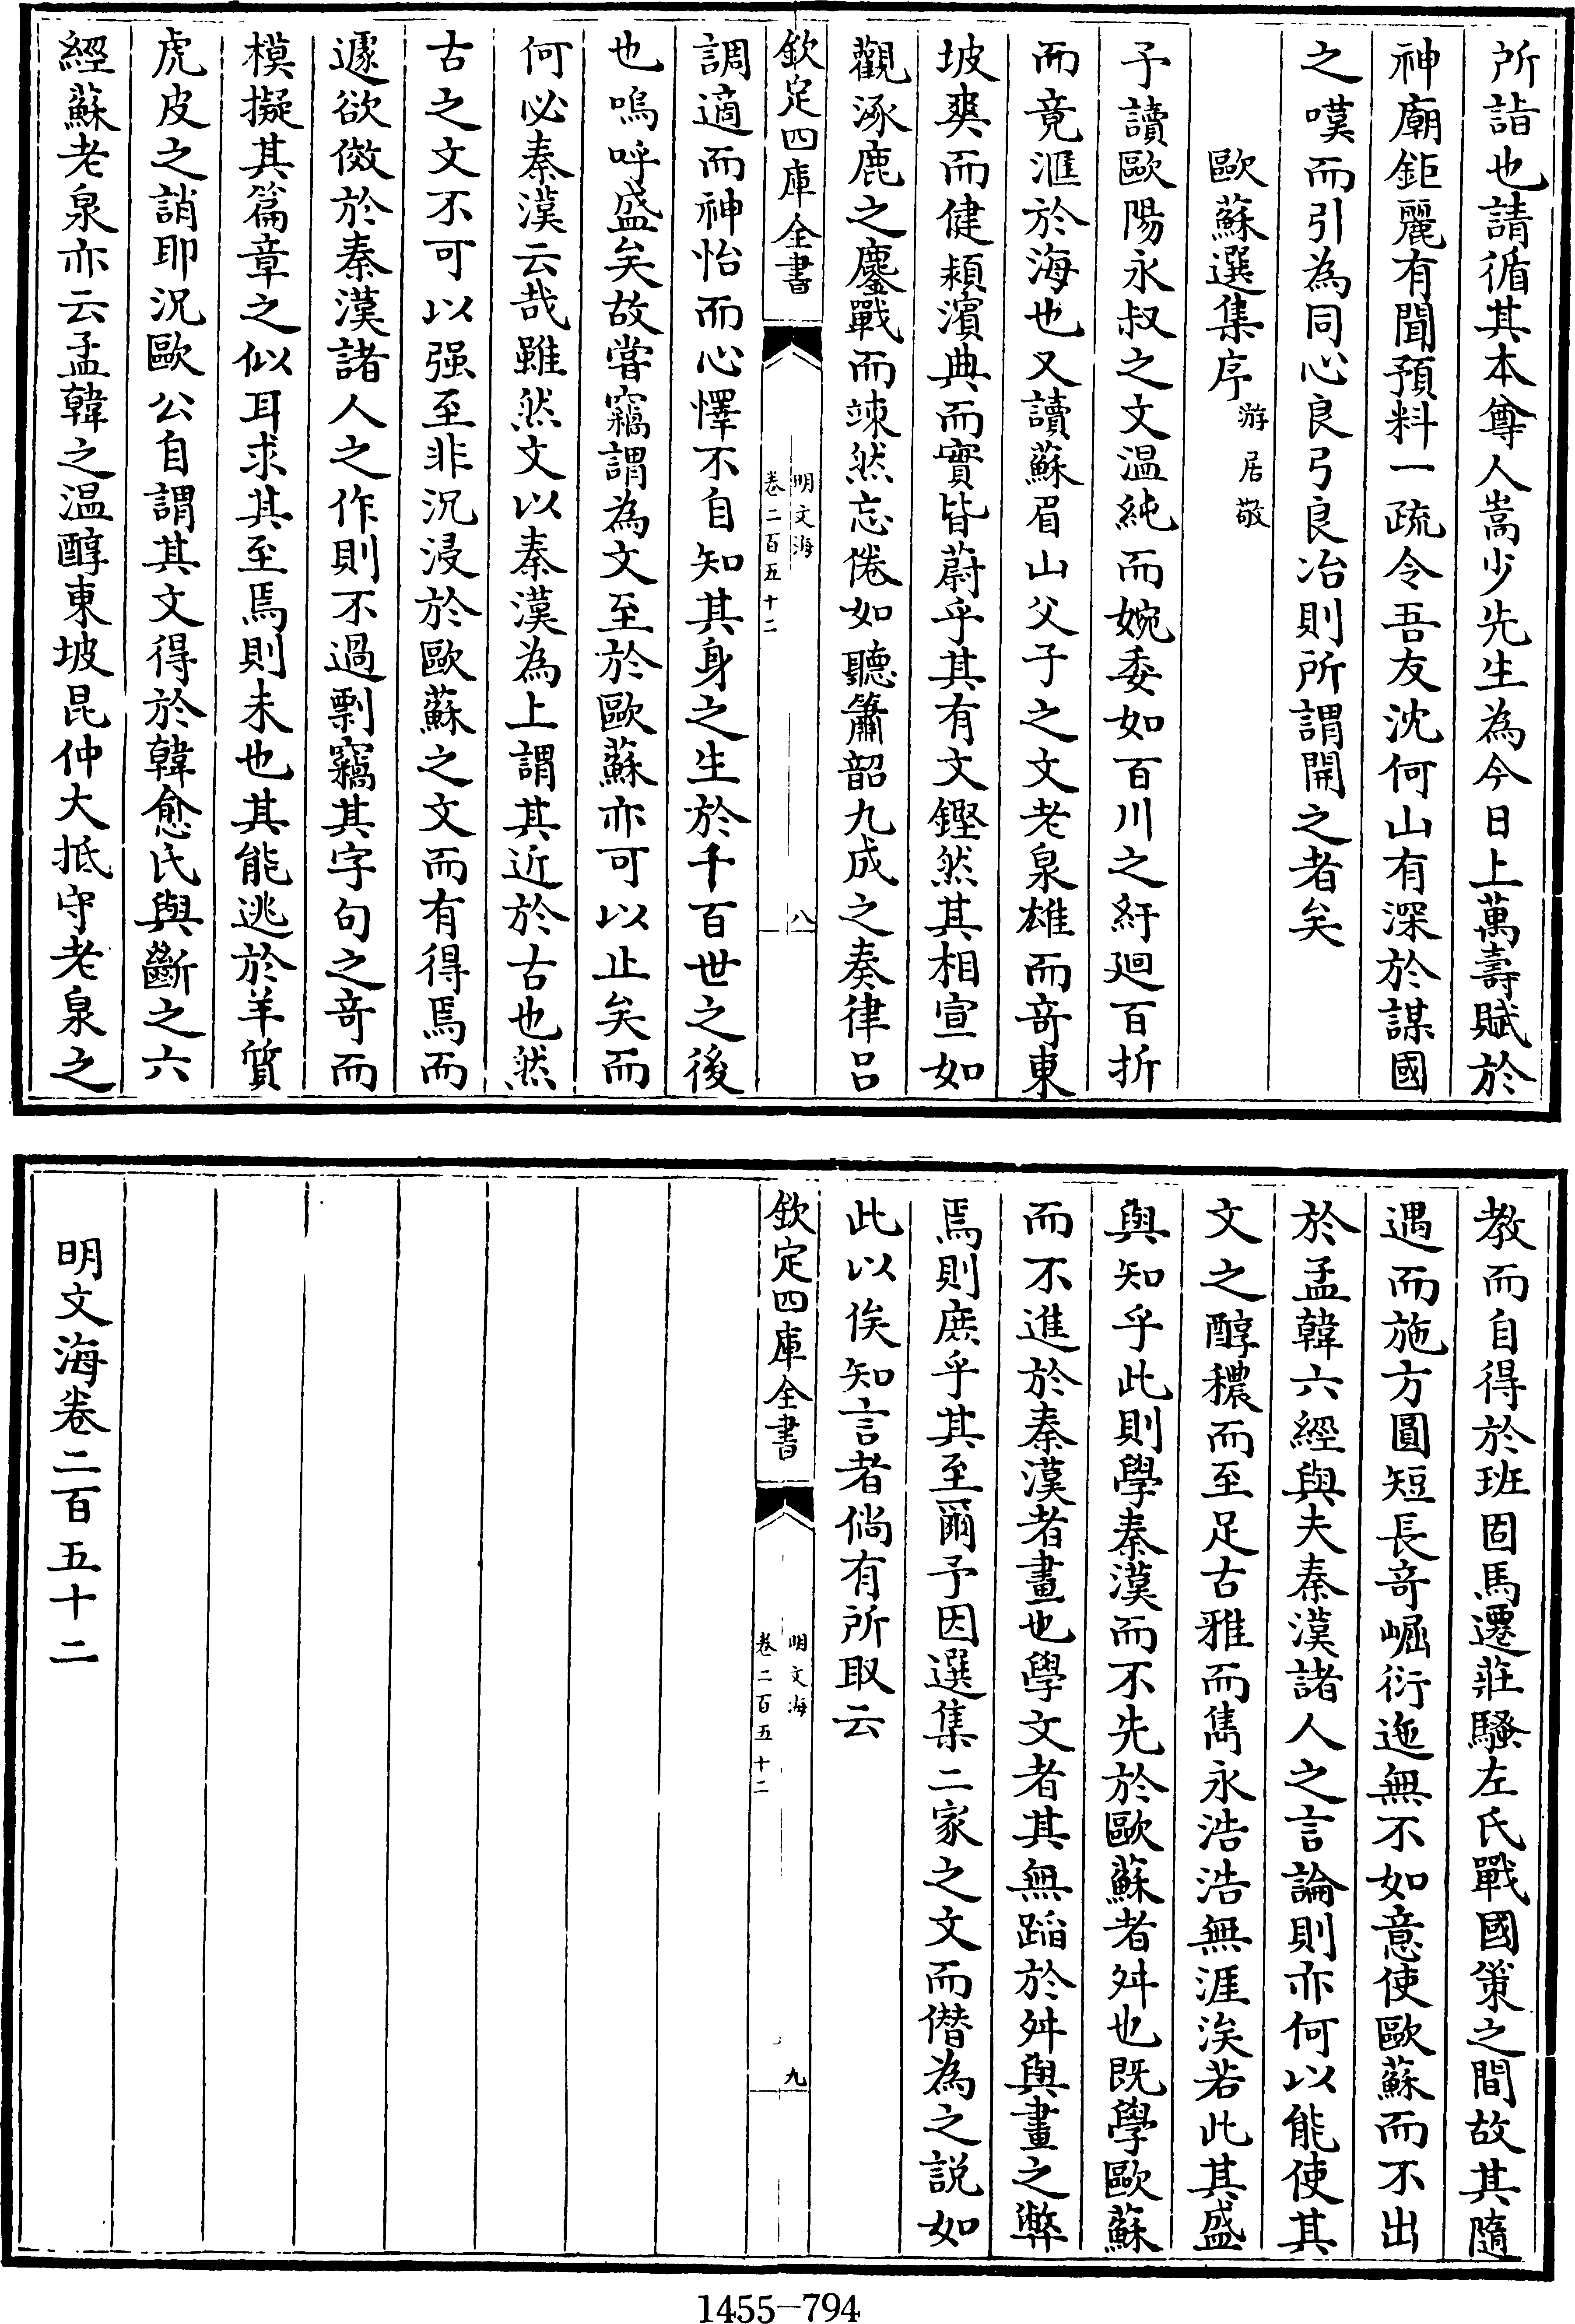 所詣也請循其本尊人嵩少先生為今日上萬壽賦於
神廟鉅麗有聞預料一疏令吾友沈何山有深於謀國
之嘆而引為同心良弓良冶則所謂開之者矣
歐蘇選集序游居敬
予讀歐陽永叔之文温純而婉委如百川之紆廻百折
而竟滙於海也又讀蘇眉山父子之文老泉雄而竒東
坡爽而健潁濱典而實皆蔚乎其有文鏗然其相宣如
觀涿鹿之鏖戰而竦然忘倦如聽簫韶九成之奏律呂
欽定四庫全書
明文海
卷二百五十二
八
調適而神怡而心懌不自知其身之生於千百世之後
也嗚呼盛矣故嘗竊謂為文至於歐蘇亦可以止矣而
何必秦漢云哉雖然文以秦漢為上謂其近於古也然
古之文不可以强至非況浸於歐蘇之文而有得焉而
遽欲倣於秦漢諸人之作則不過剽竊其字句之竒而
模擬其篇章之似耳求其至焉則未也其能逃於羊質
虎皮之誚耶況歐公自謂其文得於韓愈氏與斷之六
經蘇老泉亦云孟韓之温醇東坡昆仲大抵守老泉之
教而自得於班固馬遷莊騷左氏戰國策之間故其隨
遇而施方圓短長竒崛衍迤無不如意使歐蘇而不出
於孟韓六經與夫秦漢諸人之言論則亦何以能使其
文之醇穠而至足古雅而雋永浩浩無涯涘若此其盛
與知乎此則學秦漢而不先於歐蘇者舛也既學歐蘇
而不進於秦漢者畫也學文者其無蹈於舛與畫之弊
焉則庶乎其至爾予因選集二家之文而僭為之説如
此以俟知言者倘有所取云
欽定四庫全書
明文海
卷二百五十二
九
明文海卷二百五十二
1455-794